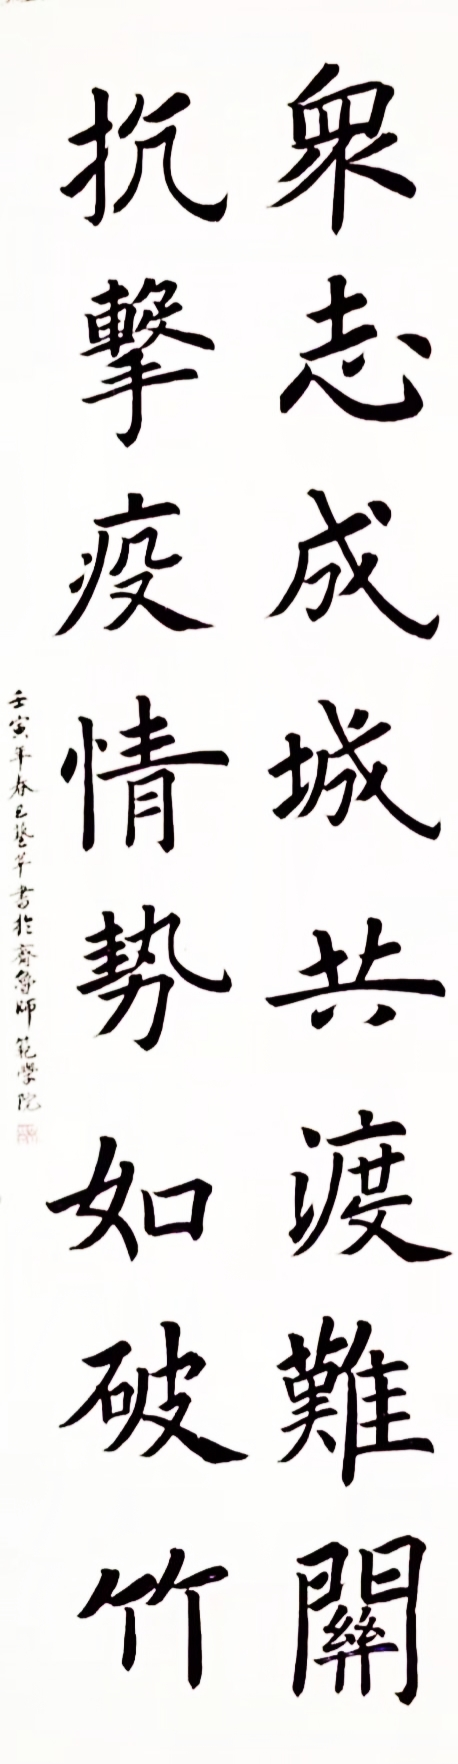 眾志成城共渡難關
抗擊疫情勢如破竹
壬寅年春王藝苹書於齊魯師範學院